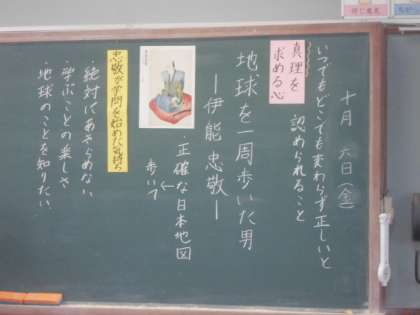 十月 六日(金)
いつでもどこでも変わらず正しいと
認められること
真理を
求める心
地球を一周歩いた男
―伊能忠敬―
・正確な日本地図
←
歩いて
忠敬が学問を始めた気持ち
・絶対にあきらめない
・学ぶことの楽しさ
・地球のことを知りたい。